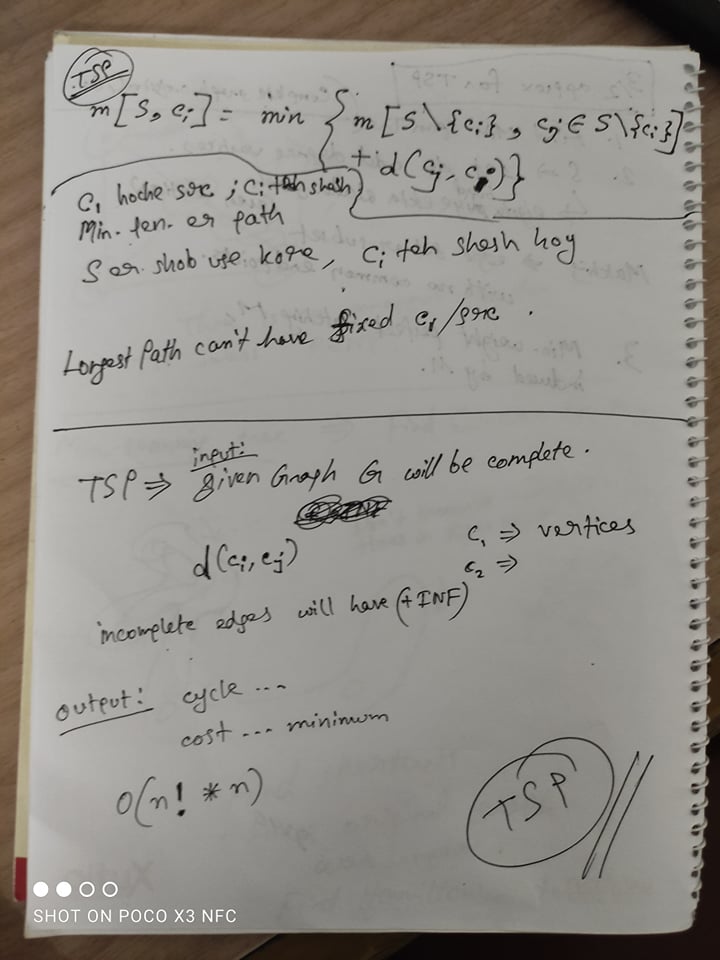 TSP
m[S, ci] = min { m[S \ {ci}, cj ∈ S \ {ci}]
+ d(cj, ci)}
C1 hoche src ; Ci teh shesh
Min. len. er path
S er shob use kore, Ci teh shesh hoy
Longest Path can't have fixed c1/src.
input:
TSP ⇒ given Graph G will be complete.
d(ci, cj)
c1 ⇒ vertices
c2 ⇒
incomplete edges will have (+INF)
output: cycle ...
cost ... minimum
O(n! * n)
TSP
SHOT ON POCO X3 NFC